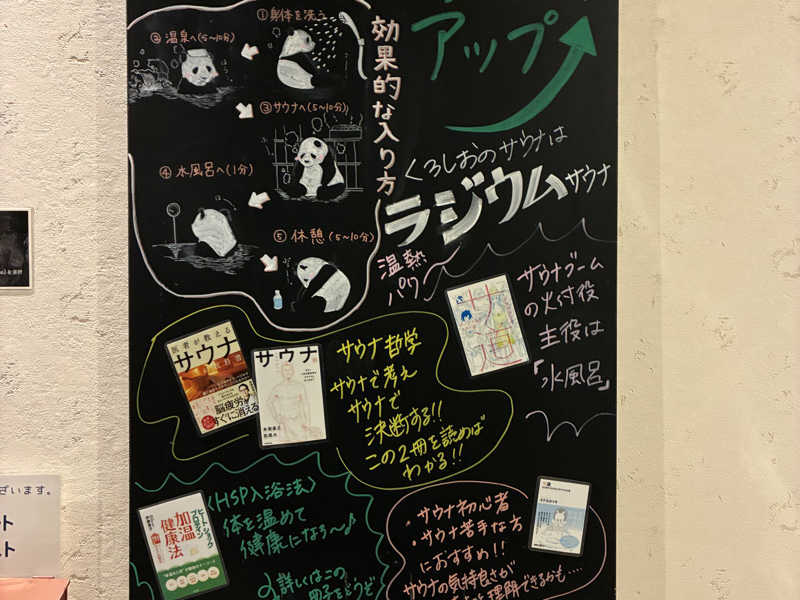 アップ
効果的な入り方
①身体を洗う
②温泉へ(5〜10分)
③サウナへ(5〜10分)
④水風呂へ(1分)
⑤休憩(5〜10分)
くろしおのサウナは
ラジウムサウナ
温熱
パワ〜
サウナブーム
の火付役
主役は
「水風呂」
サ道
医者が教える
サウナ
脳疲労が
すぐに消える
サウナ
サウナ哲学
サウナで考え
サウナで
決断する!!
この2冊を読めば
わかる!!
〈HSP入浴法〉
体を温めて
健康になろ〜♪
詳しくはこの
冊子をどうぞ
ヒートショック
プロテイン
加温
健康法
・サウナ初心者
・サウナ苦手な方
におすすめ!!
サウナの気持良さが
理解できるかも....
ざいます。
ット
スト